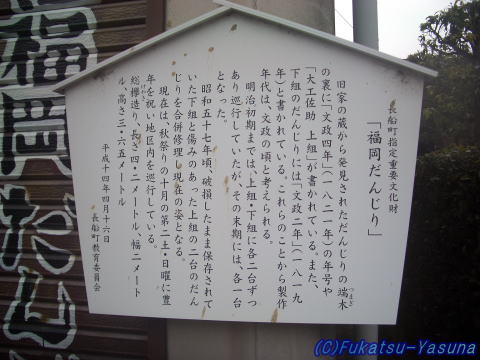 長船町指定重要文化財
「福岡だんじり」
旧家の蔵から発見されただんじりの端木
つまぎ
の裏に「文政四年」(一八二一年)の年号や
「大工佐助 上組」が書かれている。また、
下組のだんじりには「文政二年」(一八一九
年)と書かれている。これらのことから製作
年代は、文政の頃と考えられる。
明治初期までは、上組・下組に各二台ずつ
あり巡行していたが、その末期には、各一台
となった。
昭和五十七年頃、破損したまま保存されて
いた下組と傷みのあった上組の二台のだん
じりを合併修理し現在の姿となる。
現在は、秋祭りの十月の第二土・日曜に豊
年を祝い地区内を巡行している。
総欅造り、長さ四・二メートル、幅二メート
けやき
ル、高さ三・六五メートル
平成十四年四月十六日
長船町教育委員会
福岡だんじ
(C)Fukatsu-Yasuna